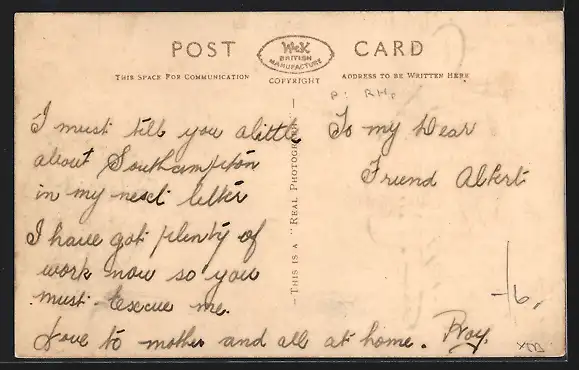 POST CARD
W&K
BRITISH
MANUFACTURE
COPYRIGHT
THIS SPACE FOR COMMUNICATION
ADDRESS TO BE WRITTEN HERE
P. RH.
I must tell you a little
about Southampton
in my next letter
I have got plenty of
work now so you
must excuse me.
Love to mother and all at home. Roy.
THIS IS A "REAL PHOTOGRAPH
To my Dear
Friend Albert
-/6.